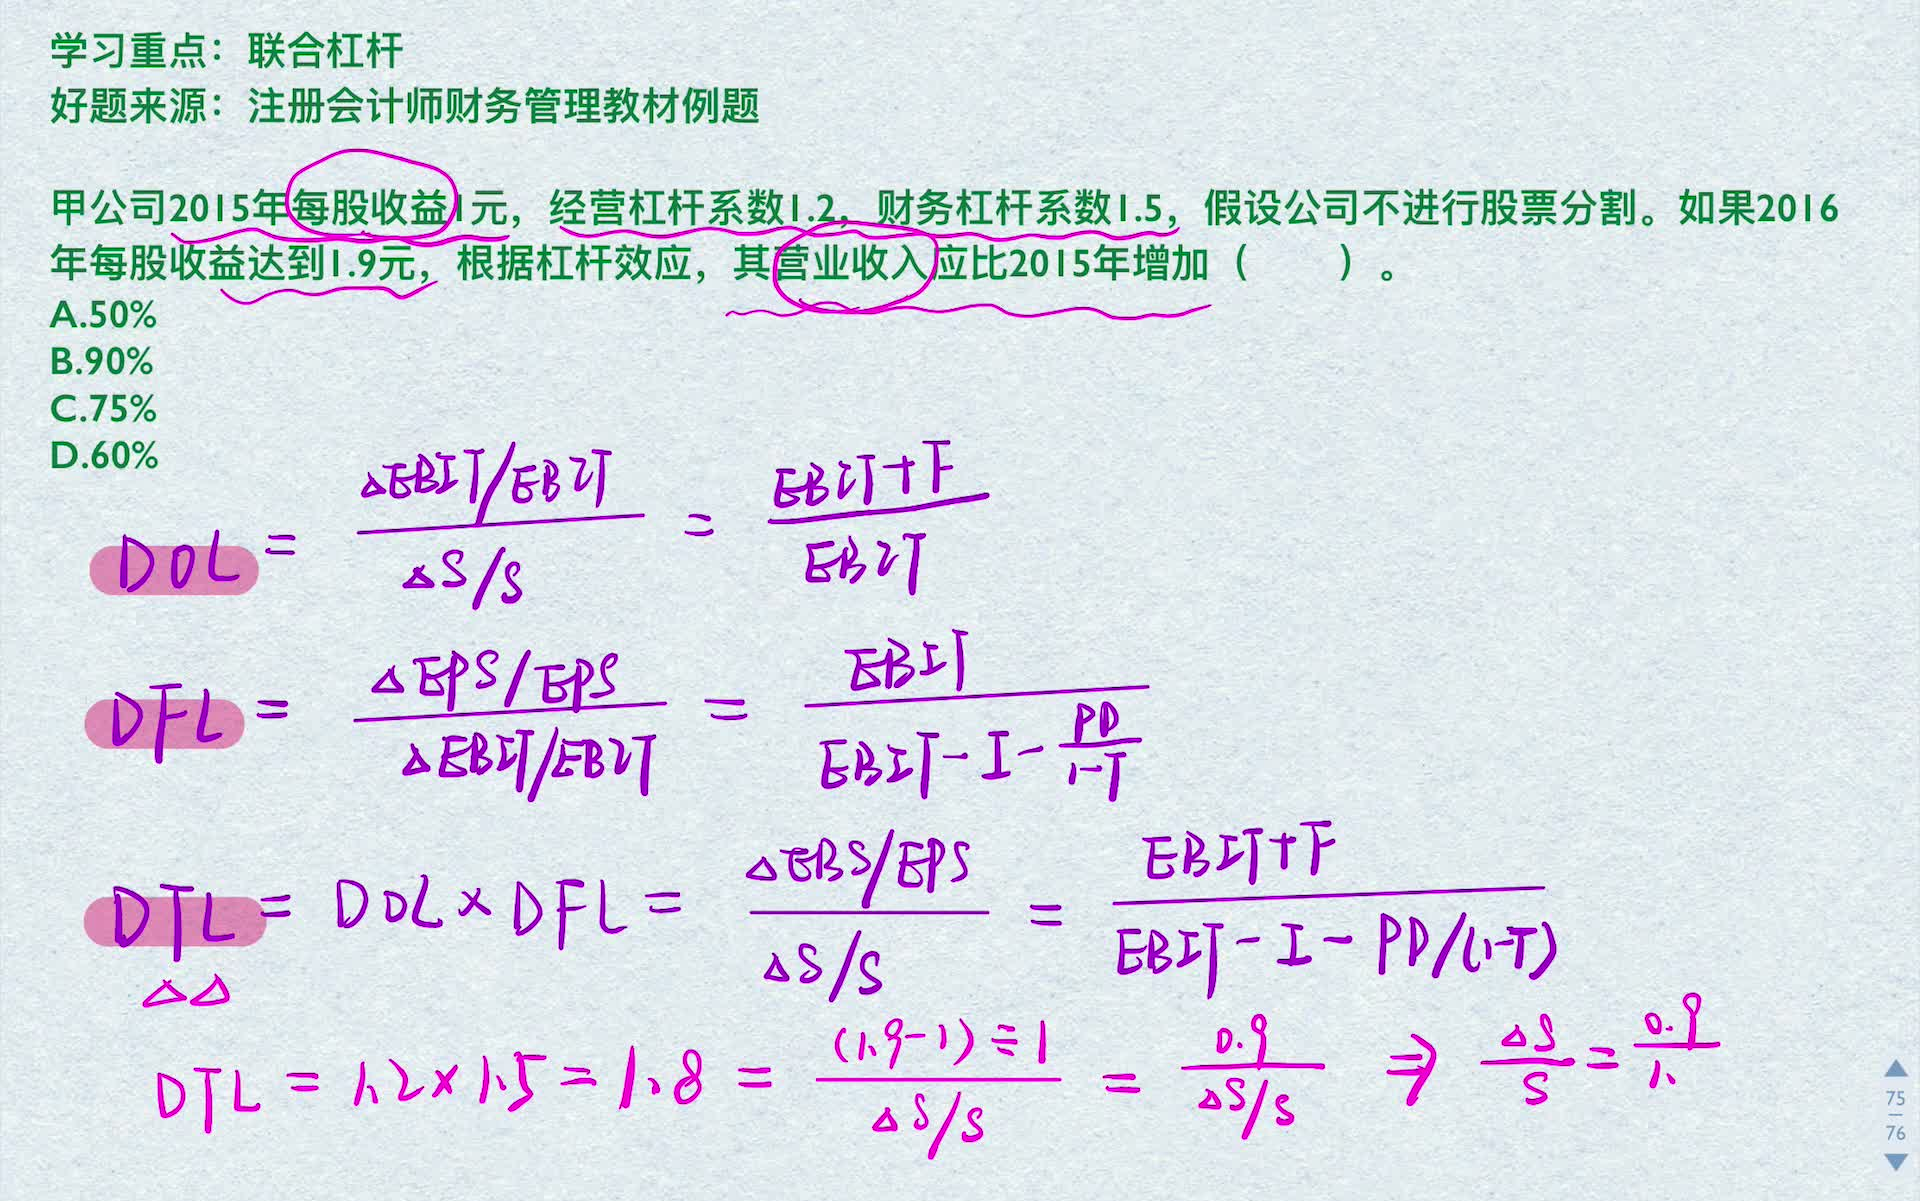 学习重点：联合杠杆
好题来源：注册会计师财务管理教材例题
甲公司2015年每股收益1元，经营杠杆系数1.2，财务杠杆系数1.5，假设公司不进行股票分割。如果2016
年每股收益达到1.9元，根据杠杆效应，其营业收入应比2015年增加（　　）。
A.50%
B.90%
C.75%
D.60%
DOL = (ΔEBIT/EBIT)/(ΔS/S) = (EBIT+F)/EBIT
DFL = (ΔEPS/EPS)/(ΔEBIT/EBIT) = EBIT/(EBIT-I-PD/(1-T))
DTL = DOL×DFL = (ΔEBS/EPS)/(ΔS/S) = (EBIT+F)/(EBIT-I-PD/(1-T))
ΔΔ
DTL = 1.2×1.5 = 1.8 = ((1.9-1)÷1)/(ΔS/S) = 0.9/(ΔS/S) ⇒ ΔS/S = 0.9/1.
75
76